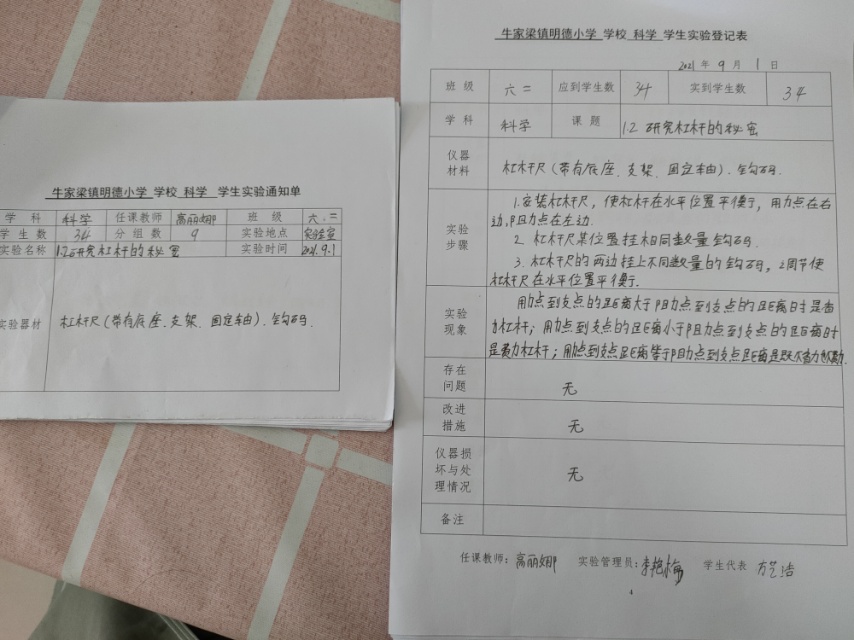 牛家梁镇明德小学 学校 科学 学生实验通知单
学 科 科学 任课教师 高丽娜 班 级 六.二
学 生 数 34 分 组 数 9 实验地点 实验室
实验名称 1.2研究杠杆的秘密 实验时间 2021.9.1
实验器材 杠杆尺(带有底座、支架、固定轴)、钩码.
牛家梁镇明德小学 学校 科学 学生实验登记表
2021 年 9 月 1 日
班 级 六二 应到学生数 34 实到学生数 34
学 科 科学 课 题 1.2 研究杠杆的秘密
仪器
材料
杠杆尺(带有底座、支架、固定轴)、钩码.
实验
步骤
1.安装杠杆尺,使杠杆在水平位置平衡,用力点在右
边,阻力点在左边.
2. 杠杆尺某位置挂相同数量钩码.
3. 杠杆尺的两边挂上不同数量的钩码,调节使
杠杆尺在水平位置平衡.
实验
现象
用力点到支点的距离大于阻力点到支点的距离时是省
力杠杆;用力点到支点的距离小于阻力点到支点的距离时
是费力杠杆;用力点到支点距离等于阻力点到支点距离是既不省力也不费力.
存在
问题
无
改进
措施
无
仪器损
坏与处
理情况
无
备注
任课教师:高丽娜 实验管理员:李艳梅 学生代表